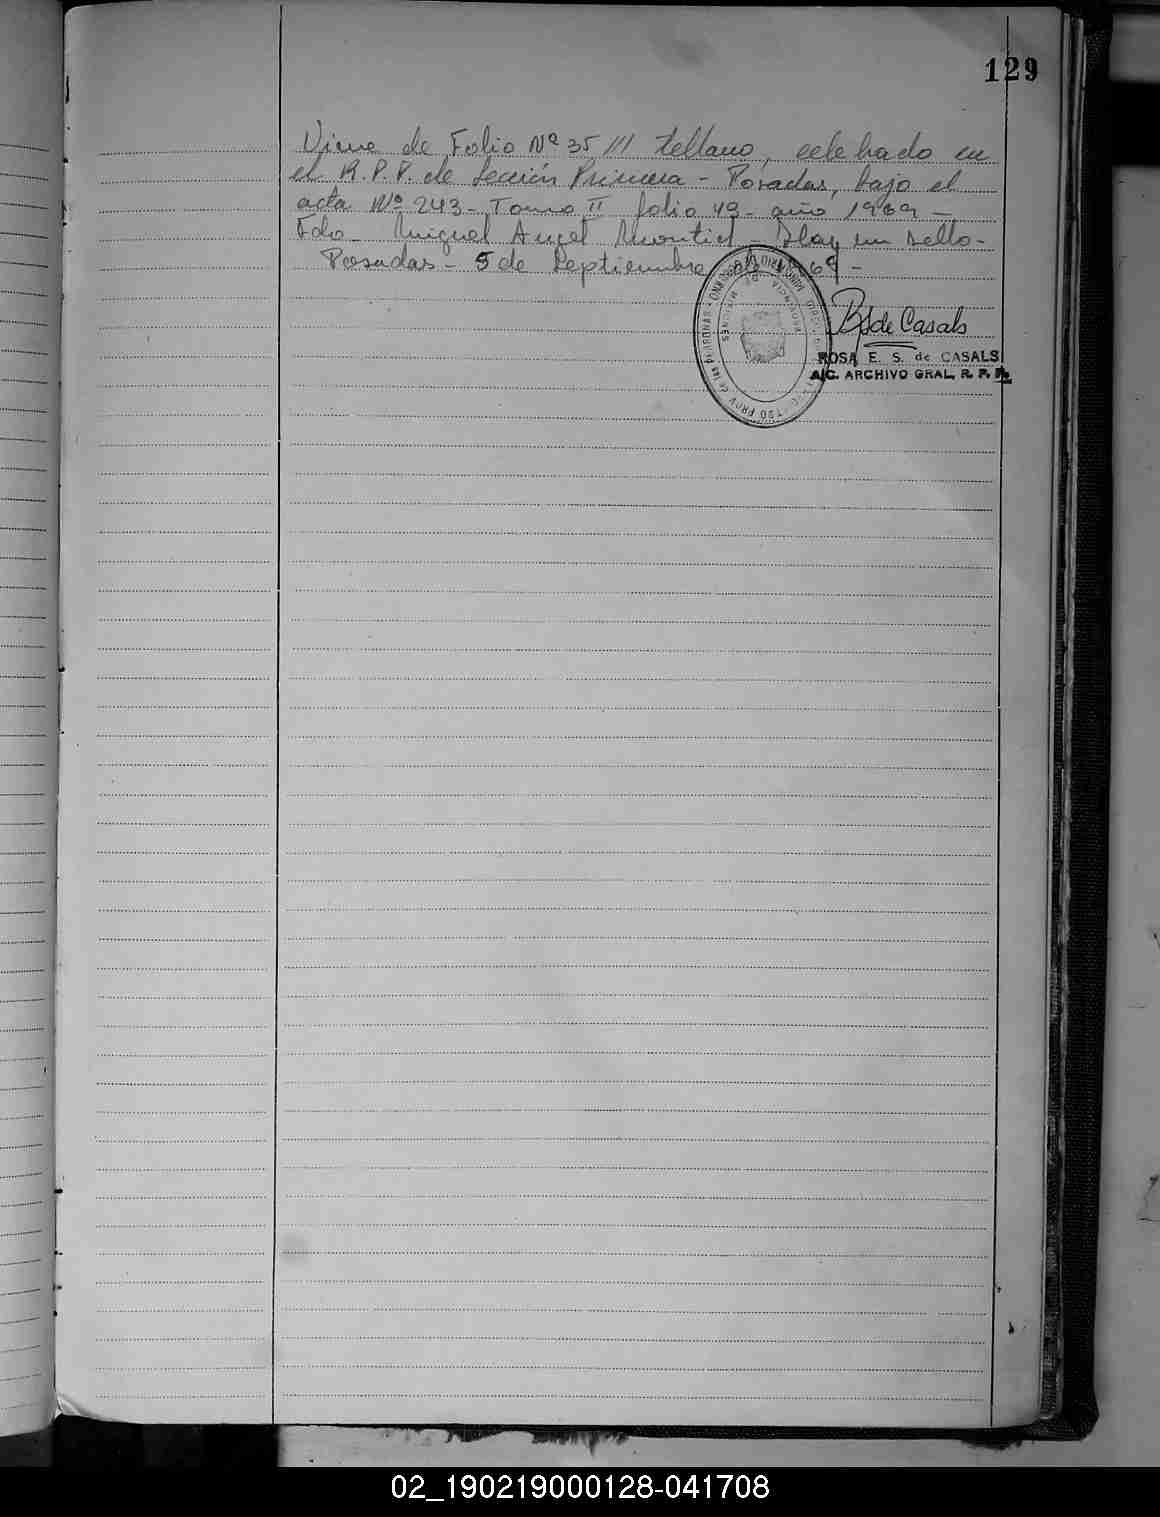 129
Viene de Folio Nº 35 /// tellano, celebrado en
el R.P.P. de Sección Primera - Posadas, bajo el
acta Nº 243 - Tomo II folio 43 - año 1969 -
Fdo - Miguel Angel Montiel - Hay un sello -
Posadas - 5 de Septiembre
de Casals
ROSA E. S. de CASALS
A/C. ARCHIVO GRAL. R. P. P.
02_190219000128-041708